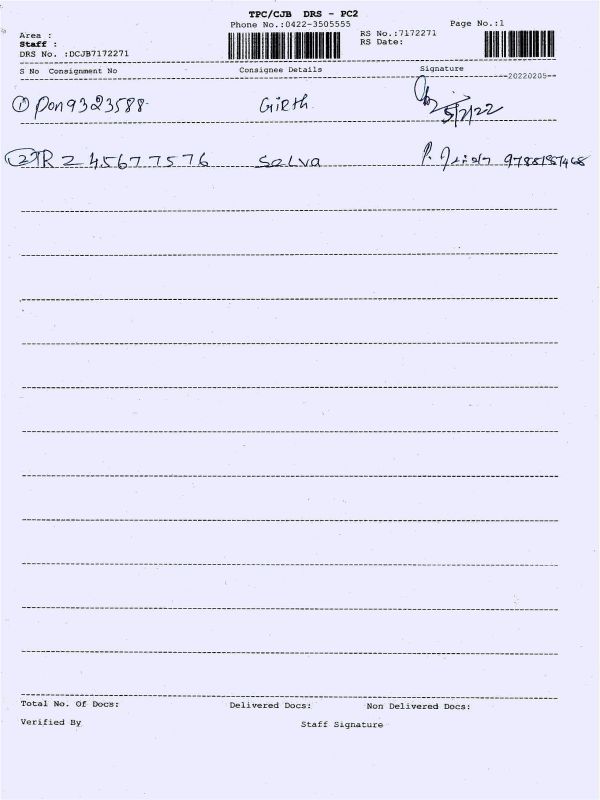 TPC/CJB DRS - PC2
Phone No.:0422-3505555 Page No.:1
Area : RS No.:7172271
Staff : RS Date:
DRS No. :DCJB7172271
S No Consignment No Consignee Details Signature
20220205
① Pon9323588 Girth 5/2/22
② TRZ 45677576 Selva P.
Total No. Of Docs: Delivered Docs: Non Delivered Docs:
Verified By Staff Signature